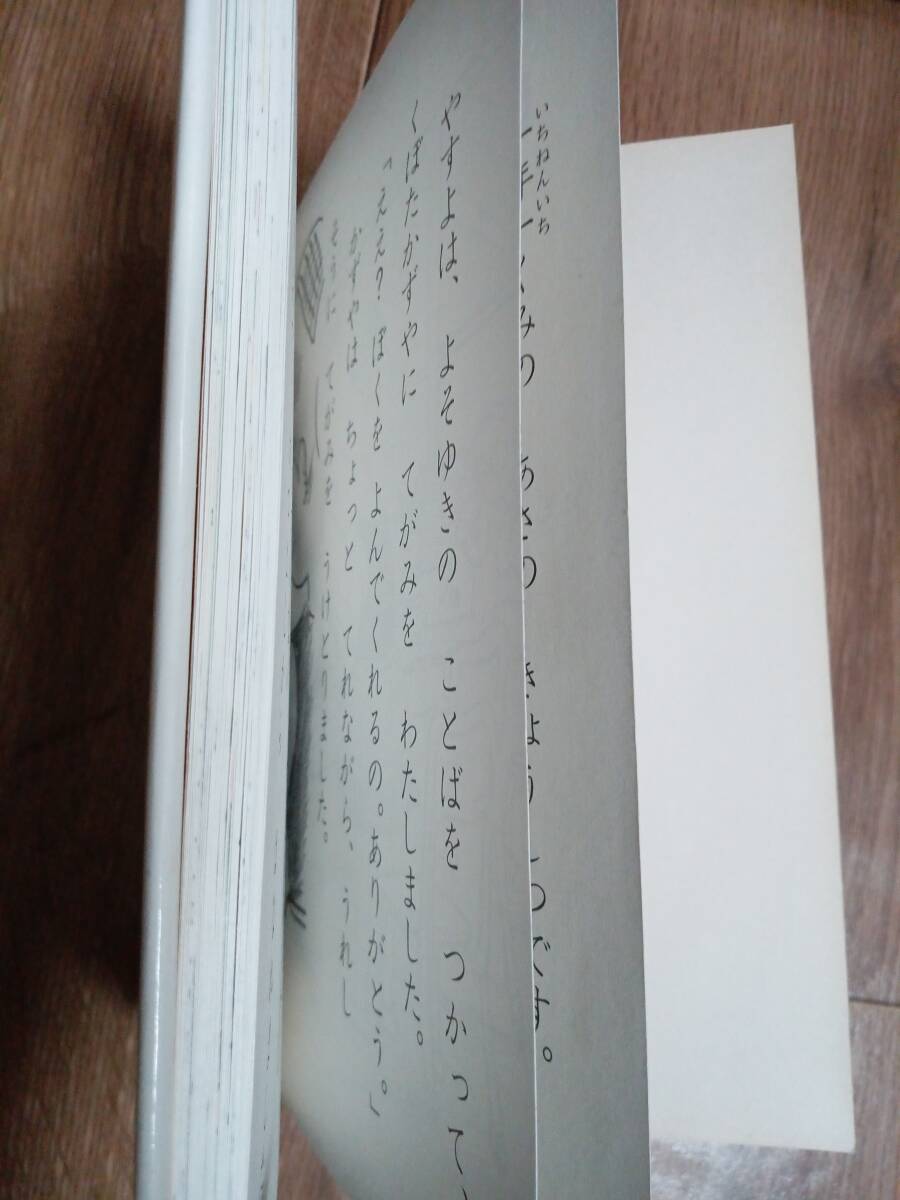 いちねんいち
一年一くみの　あさの　きょうしつです。
やすよは、　よそゆきの　ことばを　つかって、
くぼたかずやに　てがみを　わたしました。
「ええ？　ぼくを　よんでくれるの。ありがとう。」
かずやは　ちょっと　てれながら、　うれし
そうに　てがみを　うけとりました。